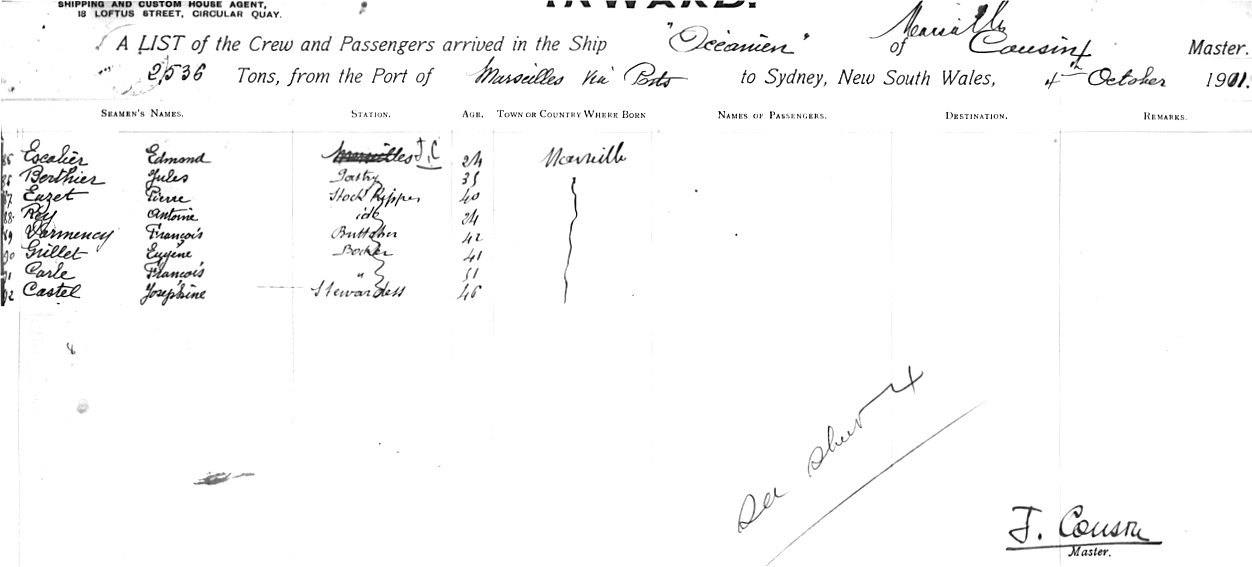 SHIPPING AND CUSTOM HOUSE AGENT,
18 LOFTUS STREET, CIRCULAR QUAY.
INWARD.
A LIST of the Crew and Passengers arrived in the Ship "Océanien" of Marseille Cousin Master.
2,536 Tons, from the Port of Marseilles via Ports to Sydney, New South Wales, 4th October 1901.
SEAMEN'S NAMES. STATION. AGE. TOWN OR COUNTRY WHERE BORN NAMES OF PASSENGERS. DESTINATION. REMARKS.
86 Escalier Edmond J.C 24 Marseille
Berthier Jules Pastry 35
87 Euzet Pierre 40
88 Rey Antoine id 24
89 Varmency François 42
90 Grillet Eugène 41
91 Carle François " 51
92 Castel Joséphine Stewardess 46
See sheet 4
J. Cousin
Master.